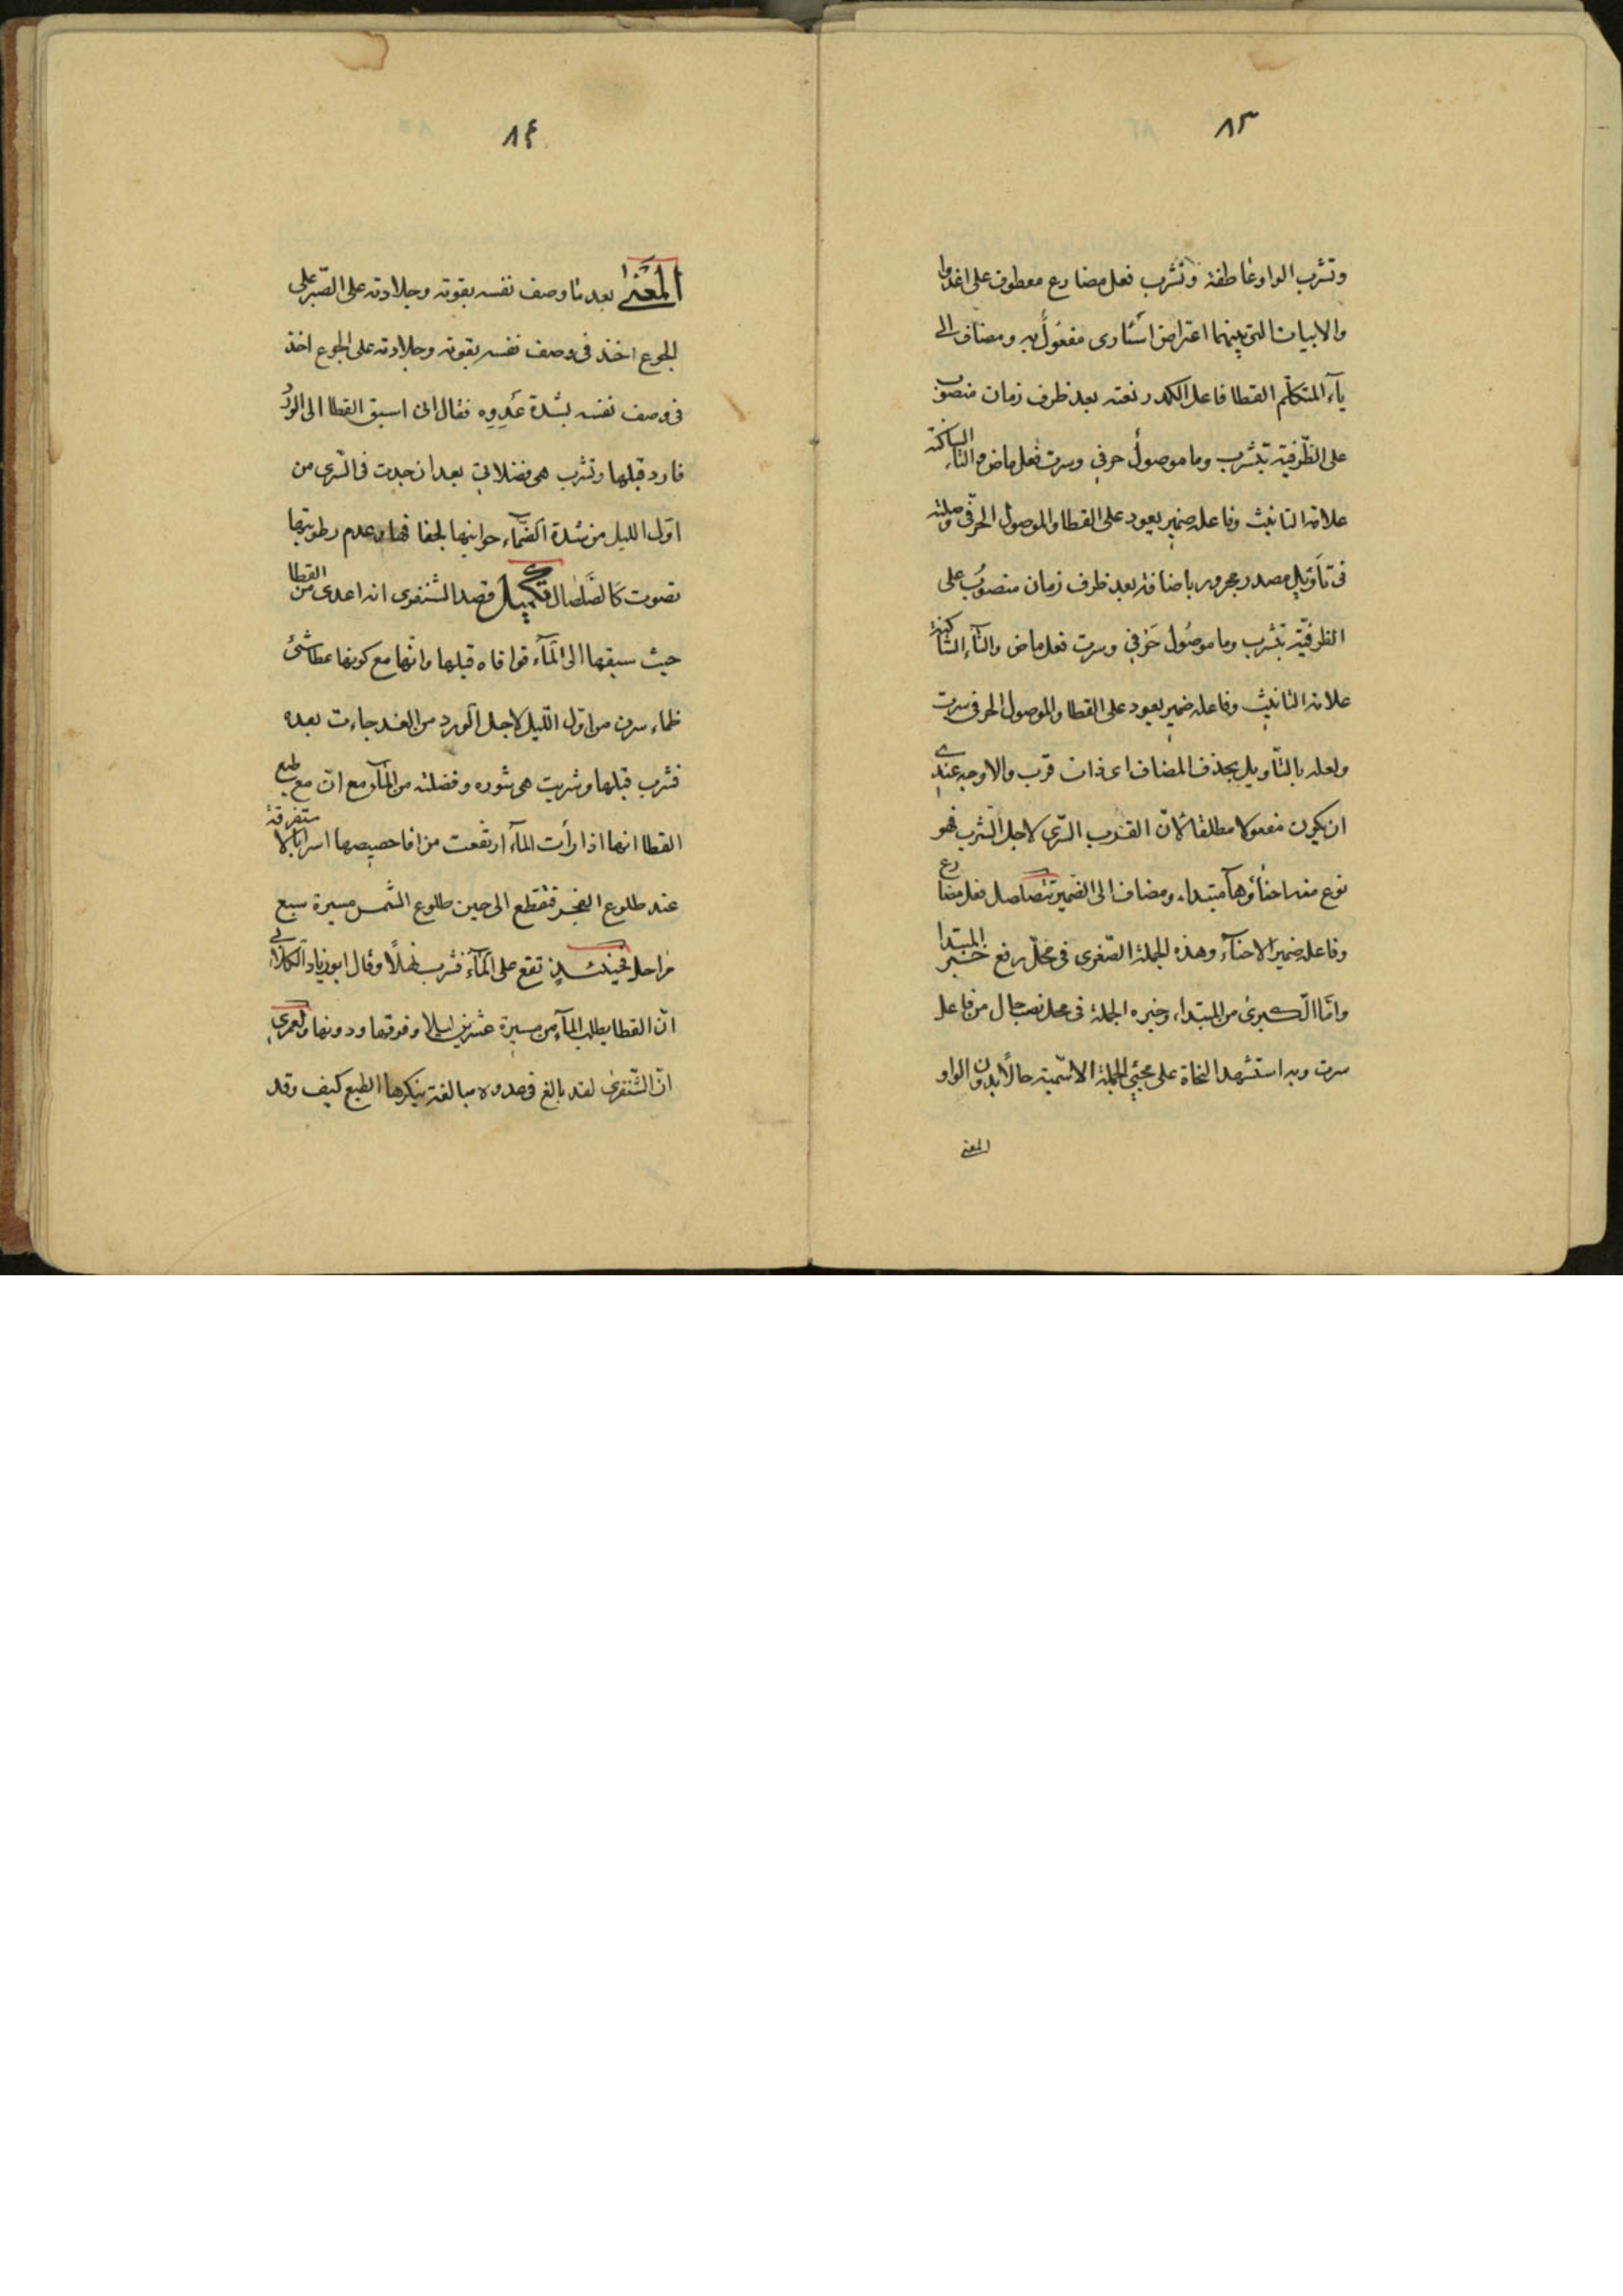 ٨٣
وتشرب الواو عاطفة وتشرب فعل مضارع معطوف على اغدوا
والابيات التى بينهما اعتراض اسٔارى مفعول به ومضاف الى
يآء المتكلّم القطا فاعل الكدر نعته بعد ظرف زمان منصوب
على الظّرفية بتشرب وما موصول حرفي وسرت فعل ماض والتاء الساكنة
علامة التانيث وفاعله ضمير يعود على القطا والموصول الحرفي وصلته
فى تأويل مصدر مجرور باضافة بعد ظرف زمان منصوب على
الظرفيّة بتشرب وما موصول حرفي وسرت فعل ماض والتآء السّاكنة
علامة التانيث وفاعله ضمير يعود على القطا والموصول الحرفى سرت
ولعله بالتّاويل بحذف المضاف اى ذات قرب والاوجه عندي
ان يكون مفعولا مطلقا لانّ القرب السّرى لاجل الشرب فهو
نوع منه احنأوها مبتداء ومضاف الى الضمير تتصلصل فعل مضارع
وفاعله ضمير الاحنآء وهذه الجملة الصّغرى فى محلّ رفع خبر المبتدا
وامّا الكبرى من المبتداء وخبره الجملة فى محل نصب حال من فاعل
سرت وبه استشهد النحاة على مجئي الجملة الاسّمية حالًا بدون الواو
المعنى
٨٤
المعنى بعد ما وصف نفسه بقوته وجلادته على الصّبر على
الجوع اخذ فى وصف نفسه بقوته وجلادته على الجوع اخذ
فى وصف نفسه بشدة عَدوِه فقال انى اسبق القطا الى الورد
فارد قبلها وتشرب هى فضلاتى بعد ان جدت فى السّرى من
اوّل الليل من شدة الظمآء جوانبها لجفافها وعدم رطوبتها
تصوت كالصَّلصال تكميل قصد الشنفرى انه اعدى من القطا
حيث سبقها الى المآء فوافاه قبلها وانّها مع كونها عطاشى
ظماء سرت من اوّل اللّيل لاجل الورد من الغد جاءت بعده
فشرب قبلها وشربت هى سٔوره وفضلته من المآء مع انّ مع طبع
القطا انها اذا رأت المآء ارتفعت من افاحيصها اسرابا لا متفرقة
عند طلوع الفجر فتقطع الى حين طلوع الشمس مسيرة سبع
مراحل فحينئذٍ تقع على المآء فشرب نهلًا وقال ابو زياد الكلابي
انّ القطا يطلب المآء من مسيرة عشرين ليلا وفوقها ودونها ولعمرى
انّ الشّنفرى لقد بالغ فى عدوه مبالغة ينكرها الطبع كيف وقد